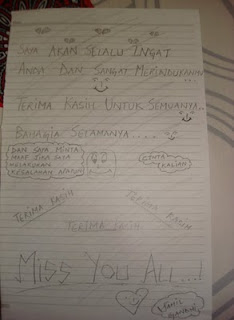 SAYA AKAN SELALU INGAT
ANDA DAN SANGAT MERINDUKANNYA
TERIMA KASIH UNTUK SEMUANYA..
BAHAGIA SELAMANYA....
DAN SAYA MINTA
MAAF JIKA SAYA
MELAKUKAN
KESALAHAN APAPUN
CINTA
KALIAN
TERIMA KASIH
TERIMA KASIH
TERIMA KASIH
MISS YOU ALL...!